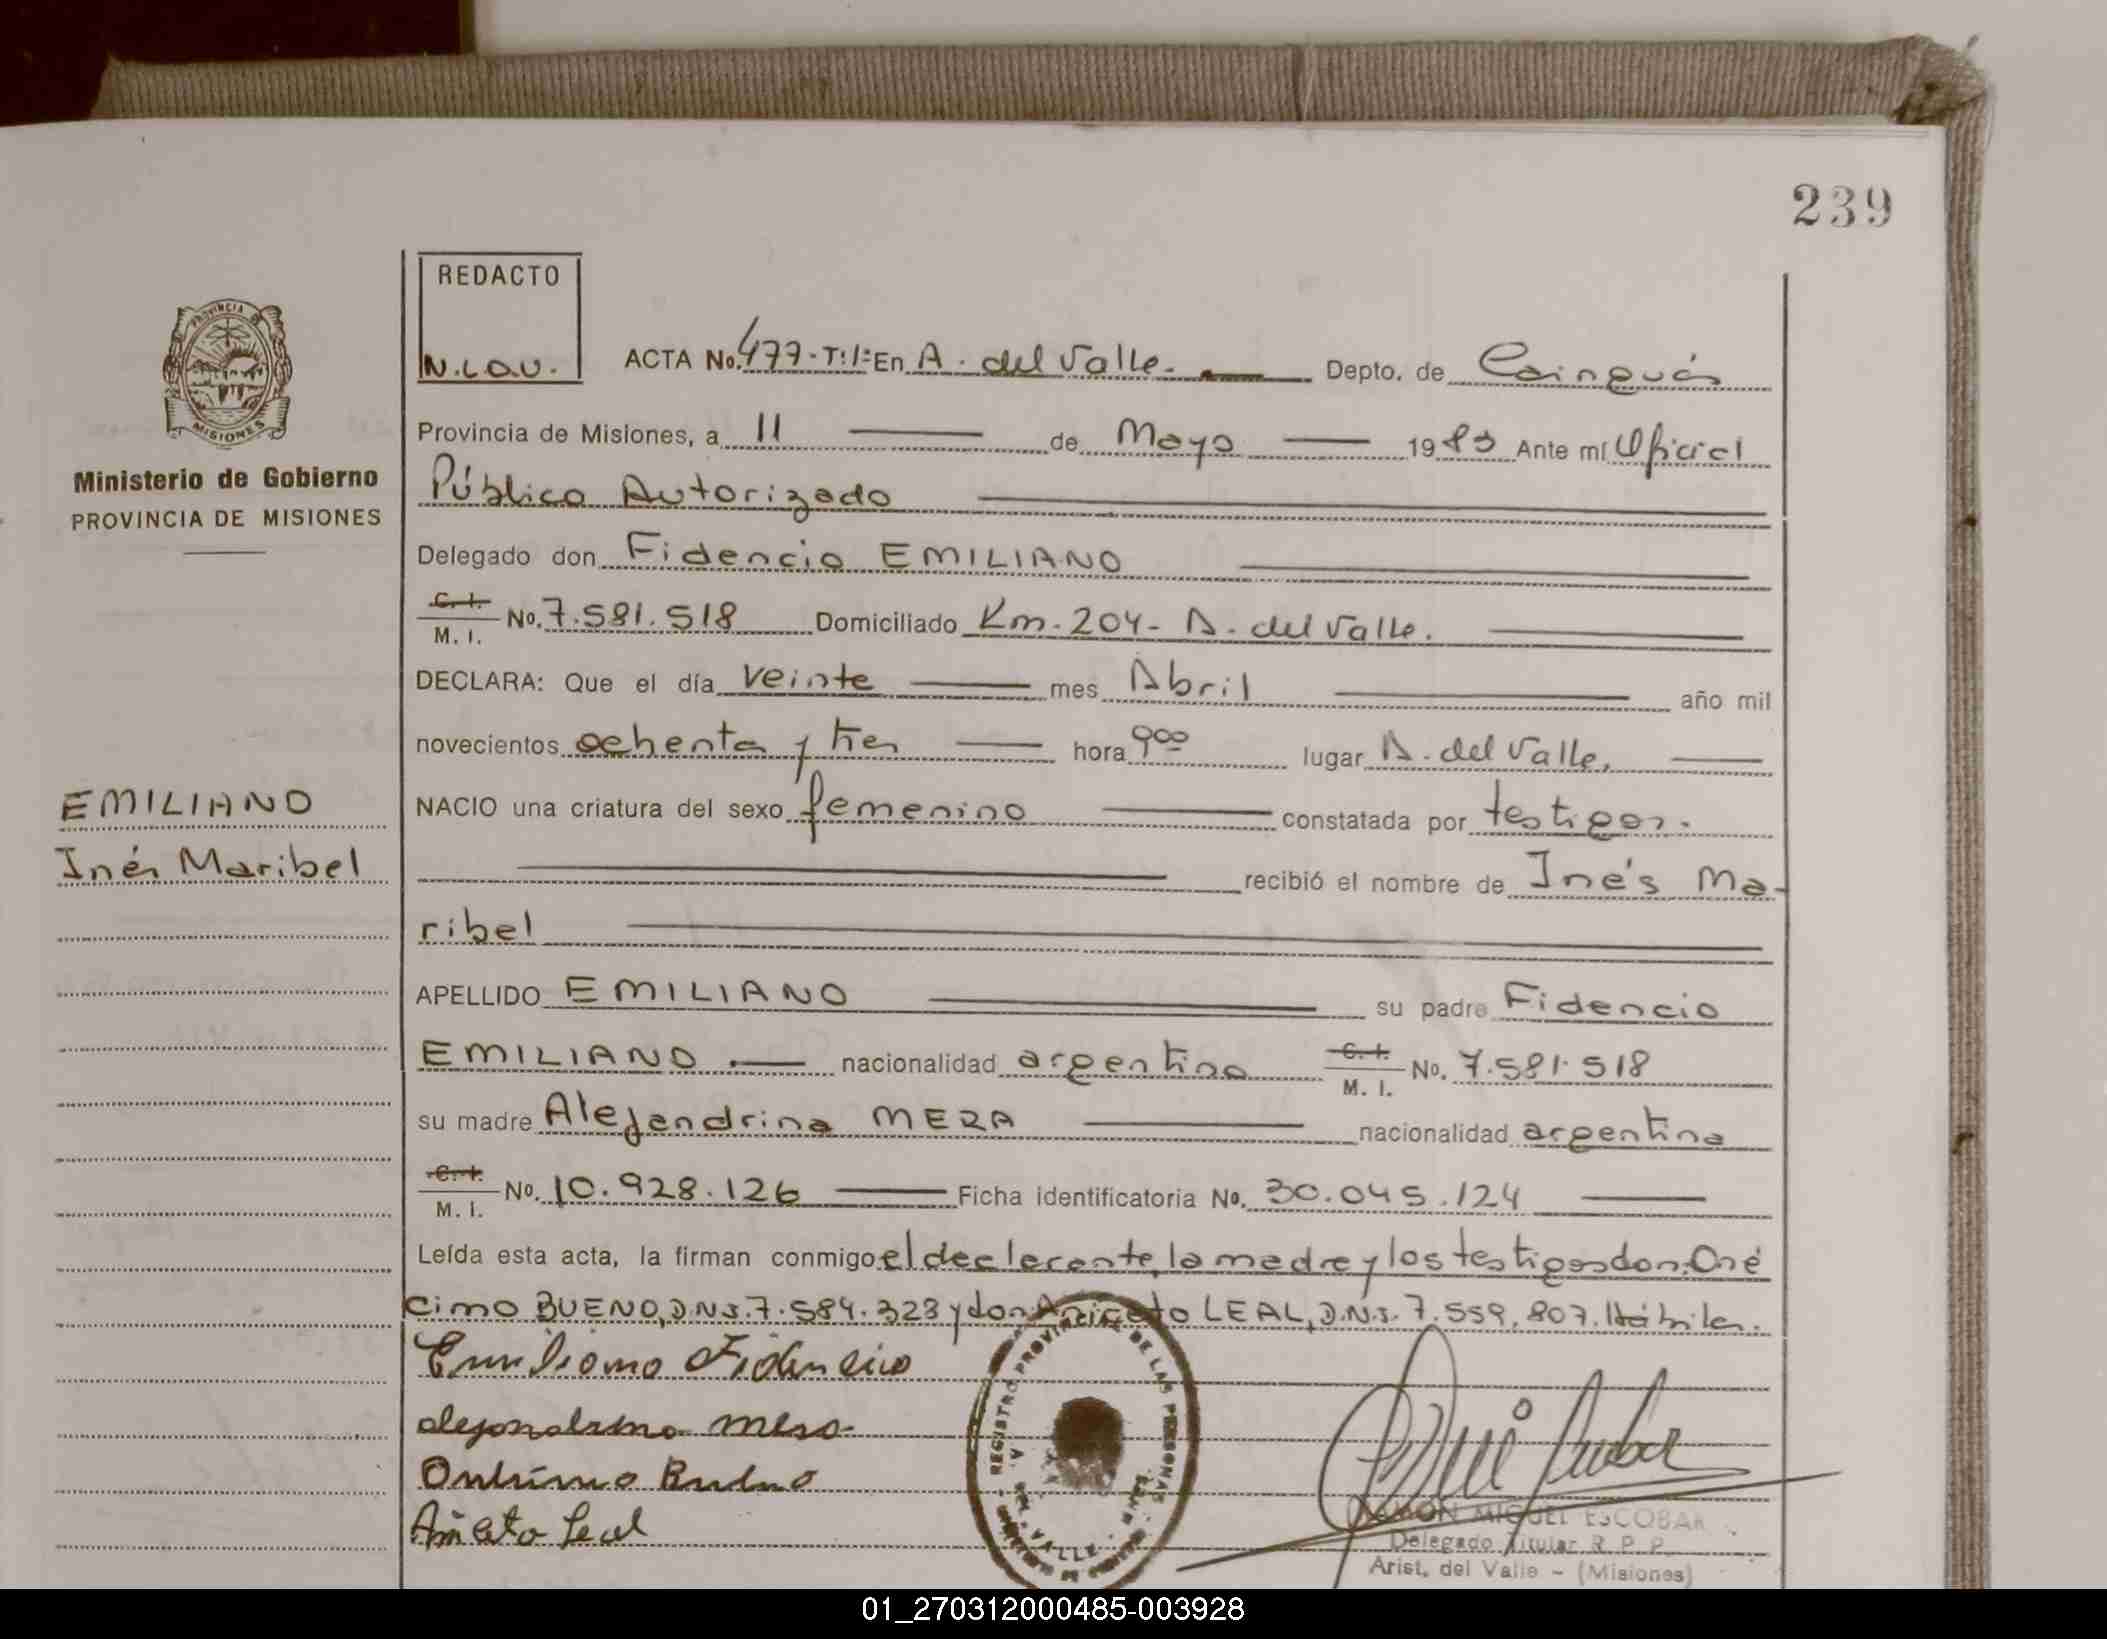 239
REDACTO
N.L.O.V.
PROVINCIA DE
MISIONES
Ministerio de Gobierno
PROVINCIA DE MISIONES
ACTA No. 477-T:1: En A. del Valle. Depto. de Cainguás
Provincia de Misiones, a 11 de Mayo 1983 Ante mí Oficial
Público Autorizado
Delegado don Fidencio EMILIANO
C. I. M. I. No. 7.581.518 Domiciliado Km. 204- A. del Valle.
DECLARA: Que el día veinte mes Abril año mil
novecientos ochenta y tres hora 9 00 lugar A. del Valle.
NACIO una criatura del sexo femenino constatada por testigos.
recibió el nombre de Inés Ma-
ribel
APELLIDO EMILIANO su padre Fidencio
EMILIANO nacionalidad argentina C. I. M. I. No. 7.581.518
su madre Alejandrina MERA nacionalidad argentina
C. I. M. I. No. 10.928.126 Ficha identificatoria No. 30.045.124
Leída esta acta, la firman conmigo el declarante, la madre y los testigos don Oné
cimo BUENO, D.N.I. 7.584.323 y don Aniceto LEAL, D.N.I. 7.559.807. Hábiles.
EMILIANO
Inés Maribel
Emiliano Fidencio
alejandrina mera
Onécimo Bueno
Aniceto Leal
REGISTRO PROVINCIAL DE LAS PERSONAS
VALLE
RAMON MIGUEL ESCOBAR
Delegado Titular R. P. P.
Arist. del Valle - (Misiones)
01_270312000485-003928